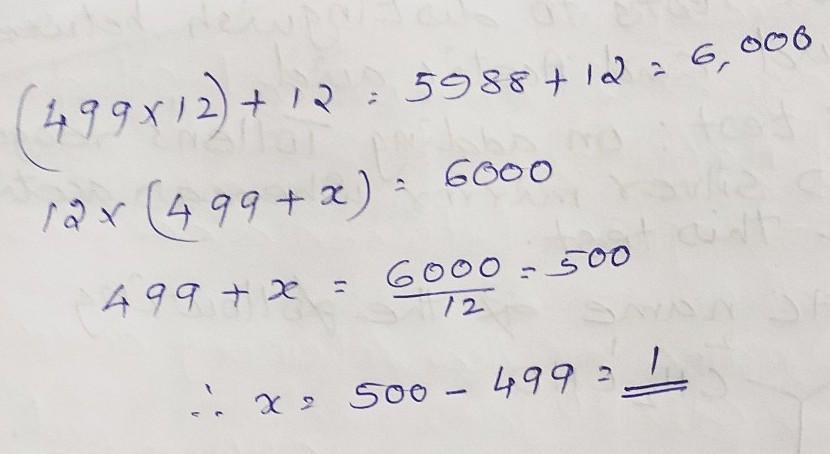 (499×12)+12 = 5988+12 = 6,000
12×(499+x) = 6000
499+x = 6000/12 = 500
∴ x = 500 - 499 = 1